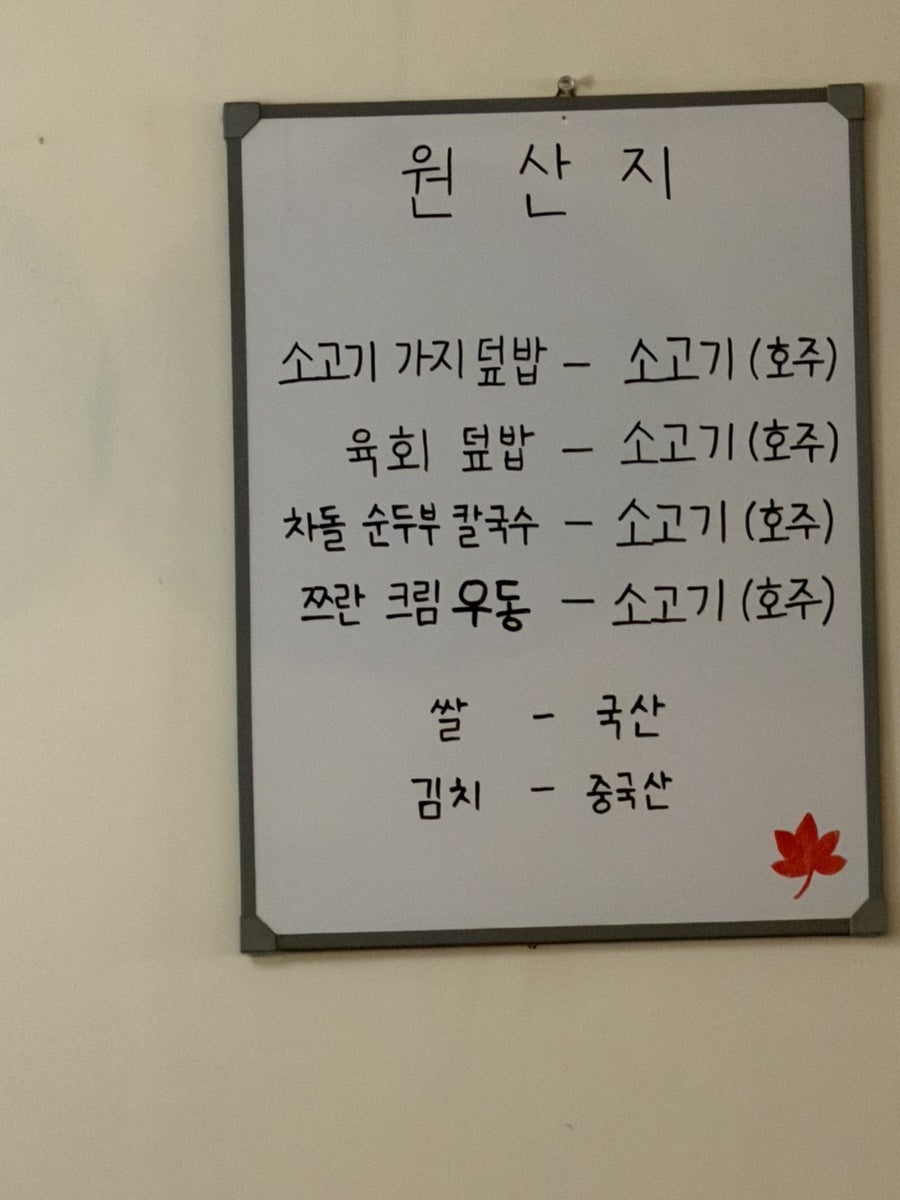 원 산 지
소고기 가지 덮밥 - 소고기 (호주)
육회 덮밥 - 소고기 (호주)
차돌 순두부 칼국수 - 소고기 (호주)
쯔란 크림 우동 - 소고기 (호주)
쌀 - 국산
김치 - 중국산